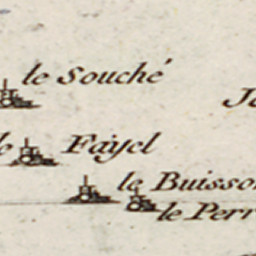 le Souché
le Fayel
le Buisson
le Perr